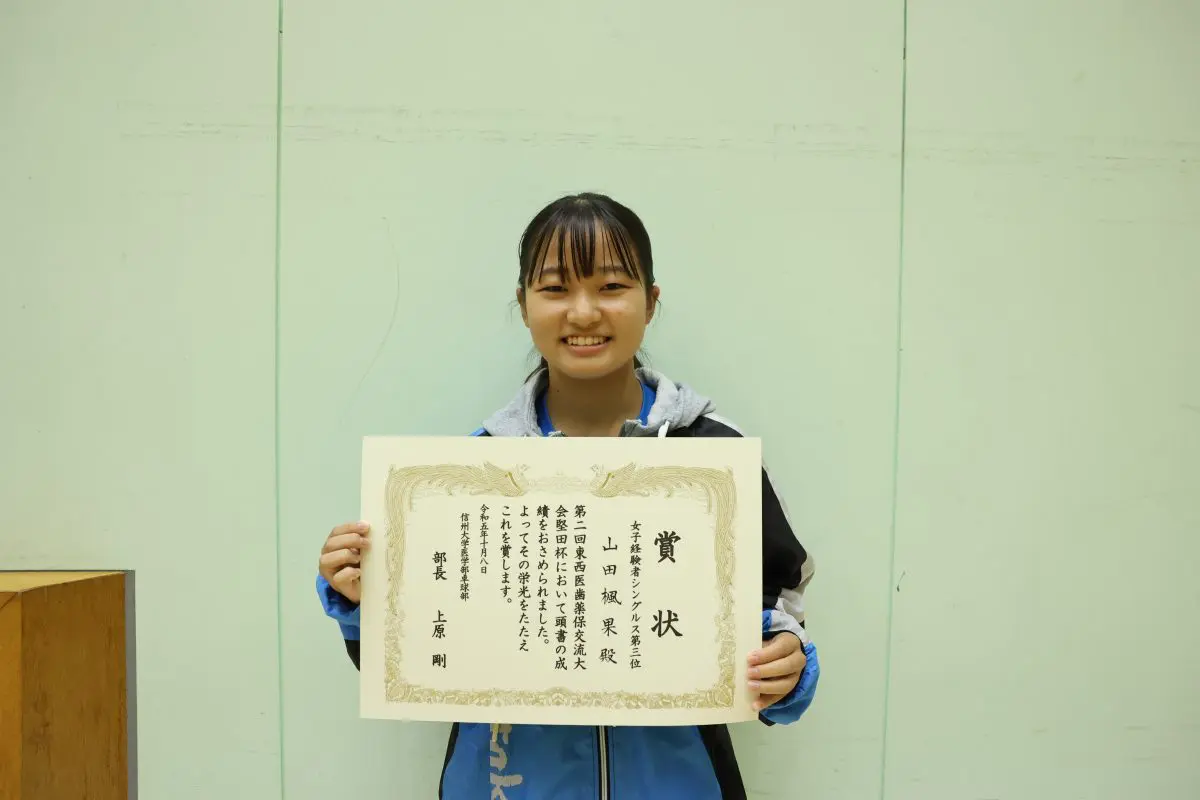 賞状
女子経験者シングルス第三位
山田楓果殿
第二回東西医歯薬保交流大
会堅田杯において頭書の成
績をおさめられました。
よってその栄光をたたえ
これを賞します。
令和五年十月八日
信州大学医学部卓球部
部長 上原 剛